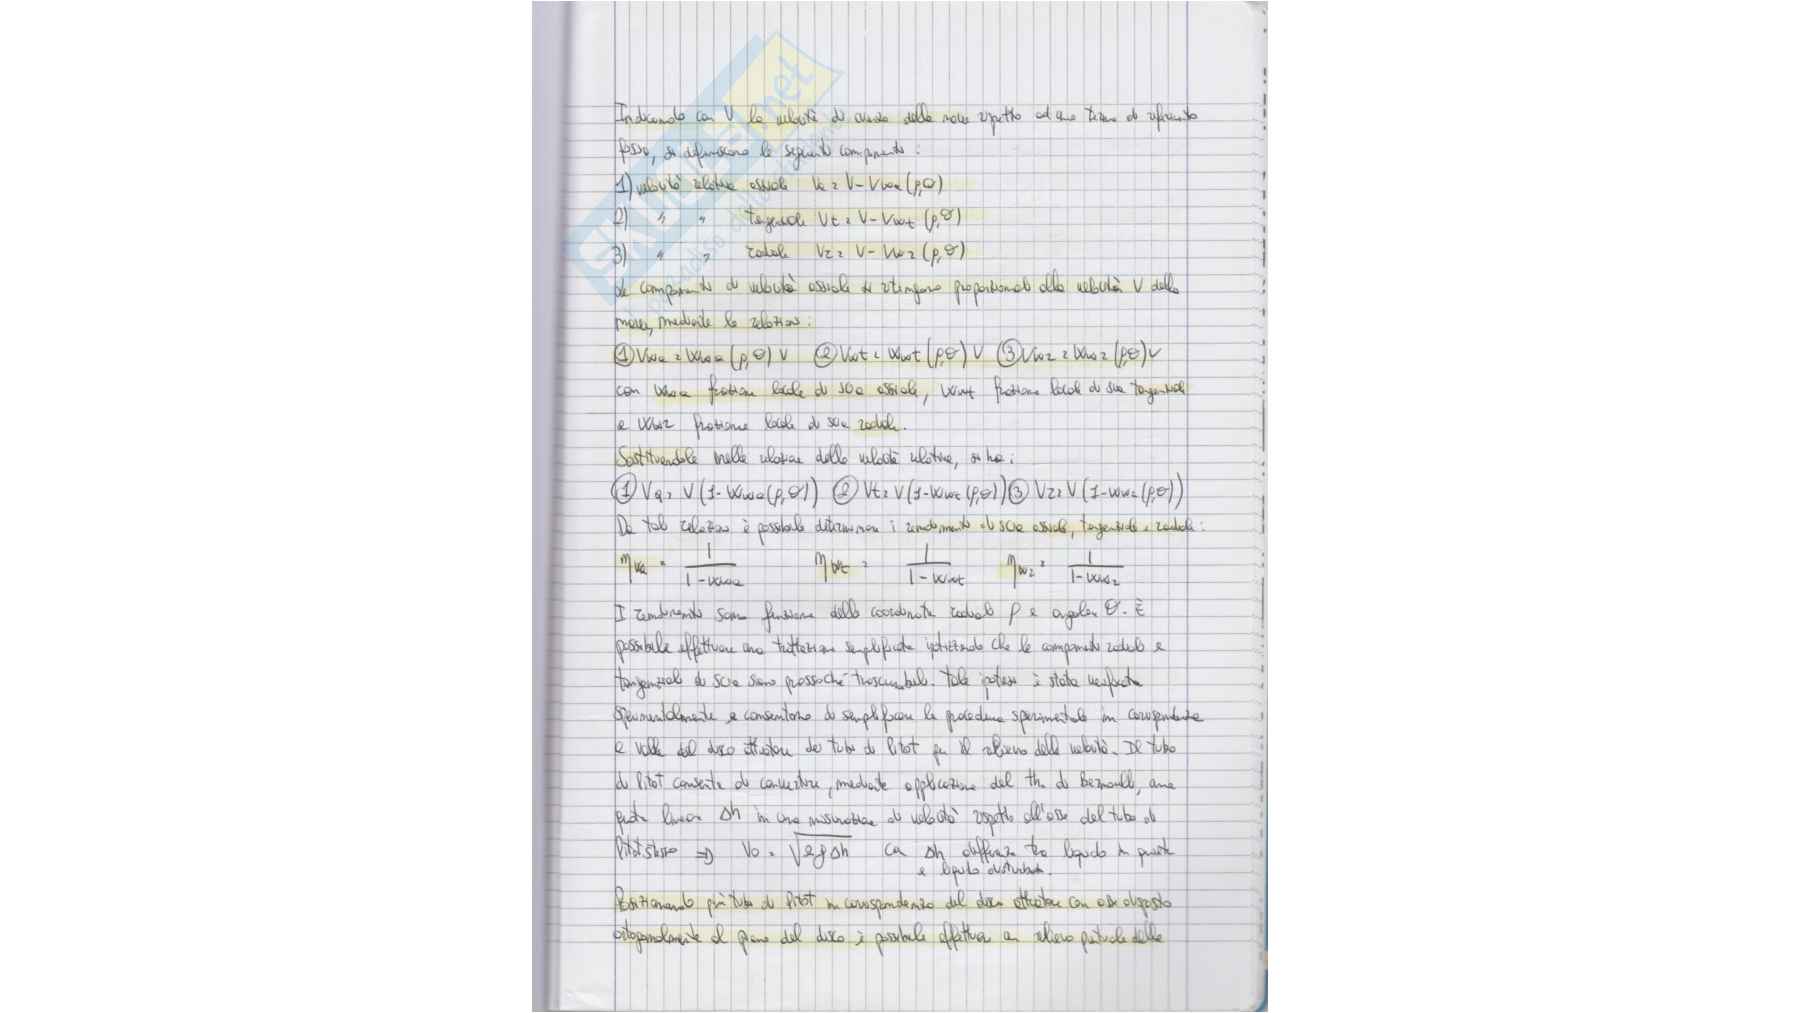 Indicando con V la velocità di avanzo della nave rispetto ad una terna di riferimento
fissa, si definiscono le seguenti componenti:
1) velocità relativa assiale Va = V - Vwa (ρ,θ)
2) " " tangenziale Vt = V - Vwt (ρ,θ)
3) " " radiale Vr = V - Vwr (ρ,θ)
Le componenti di velocità assiale si ritengono proporzionali alla velocità V della
nave, mediante le relazioni:
① Vwa = Wwa (ρ,θ) V ② Vwt = Wwt (ρ,θ) V ③ Vwr = Wwr (ρ,θ) V
con Wwa frazione locale di scia assiale, Wwt frazione locale di scia tangenziale
e Wwr frazione locale di scia radiale.
Sostituendole nelle relazioni delle velocità relative, si ha:
① Va = V (1-Wwa (ρ,θ)) ② Vt = V (1-Wwt (ρ,θ)) ③ Vr = V (1-Wwr (ρ,θ))
Da tali relazioni è possibile determinare i rendimenti di scia assiale, tangenziale e radiale:
ηwa = 1/(1-Wwa) ηwt = 1/(1-Wwt) ηwr = 1/(1-Wwr)
I rendimenti sono funzione delle coordinate radiali ρ e angolari θ. È
possibile effettuare una trattazione semplificata ipotizzando che le componenti radiali e
tangenziali di scia siano pressoché trascurabili. Tale ipotesi è stata verificata
sperimentalmente e consentono di semplificare le procedure sperimentali in corrispondenza
e valle del disco attuatore dei tubi di Pitot per il rilievo delle velocità. Il tubo
di Pitot consente di convertire, mediante applicazione del th. di Bernoulli, una
quota lineare Δh in una misurazione di velocità rispetto all'asse del tubo di
Pitot stesso ⇒ V0 = √2gΔh con Δh differenza tra liquido in quiete
e liquido disturbato.
Posizionando più tubi di Pitot in corrispondenza del disco attuatore con asse disposto
ortogonalmente al piano del disco è possibile effettuare un rilievo puntuale delle